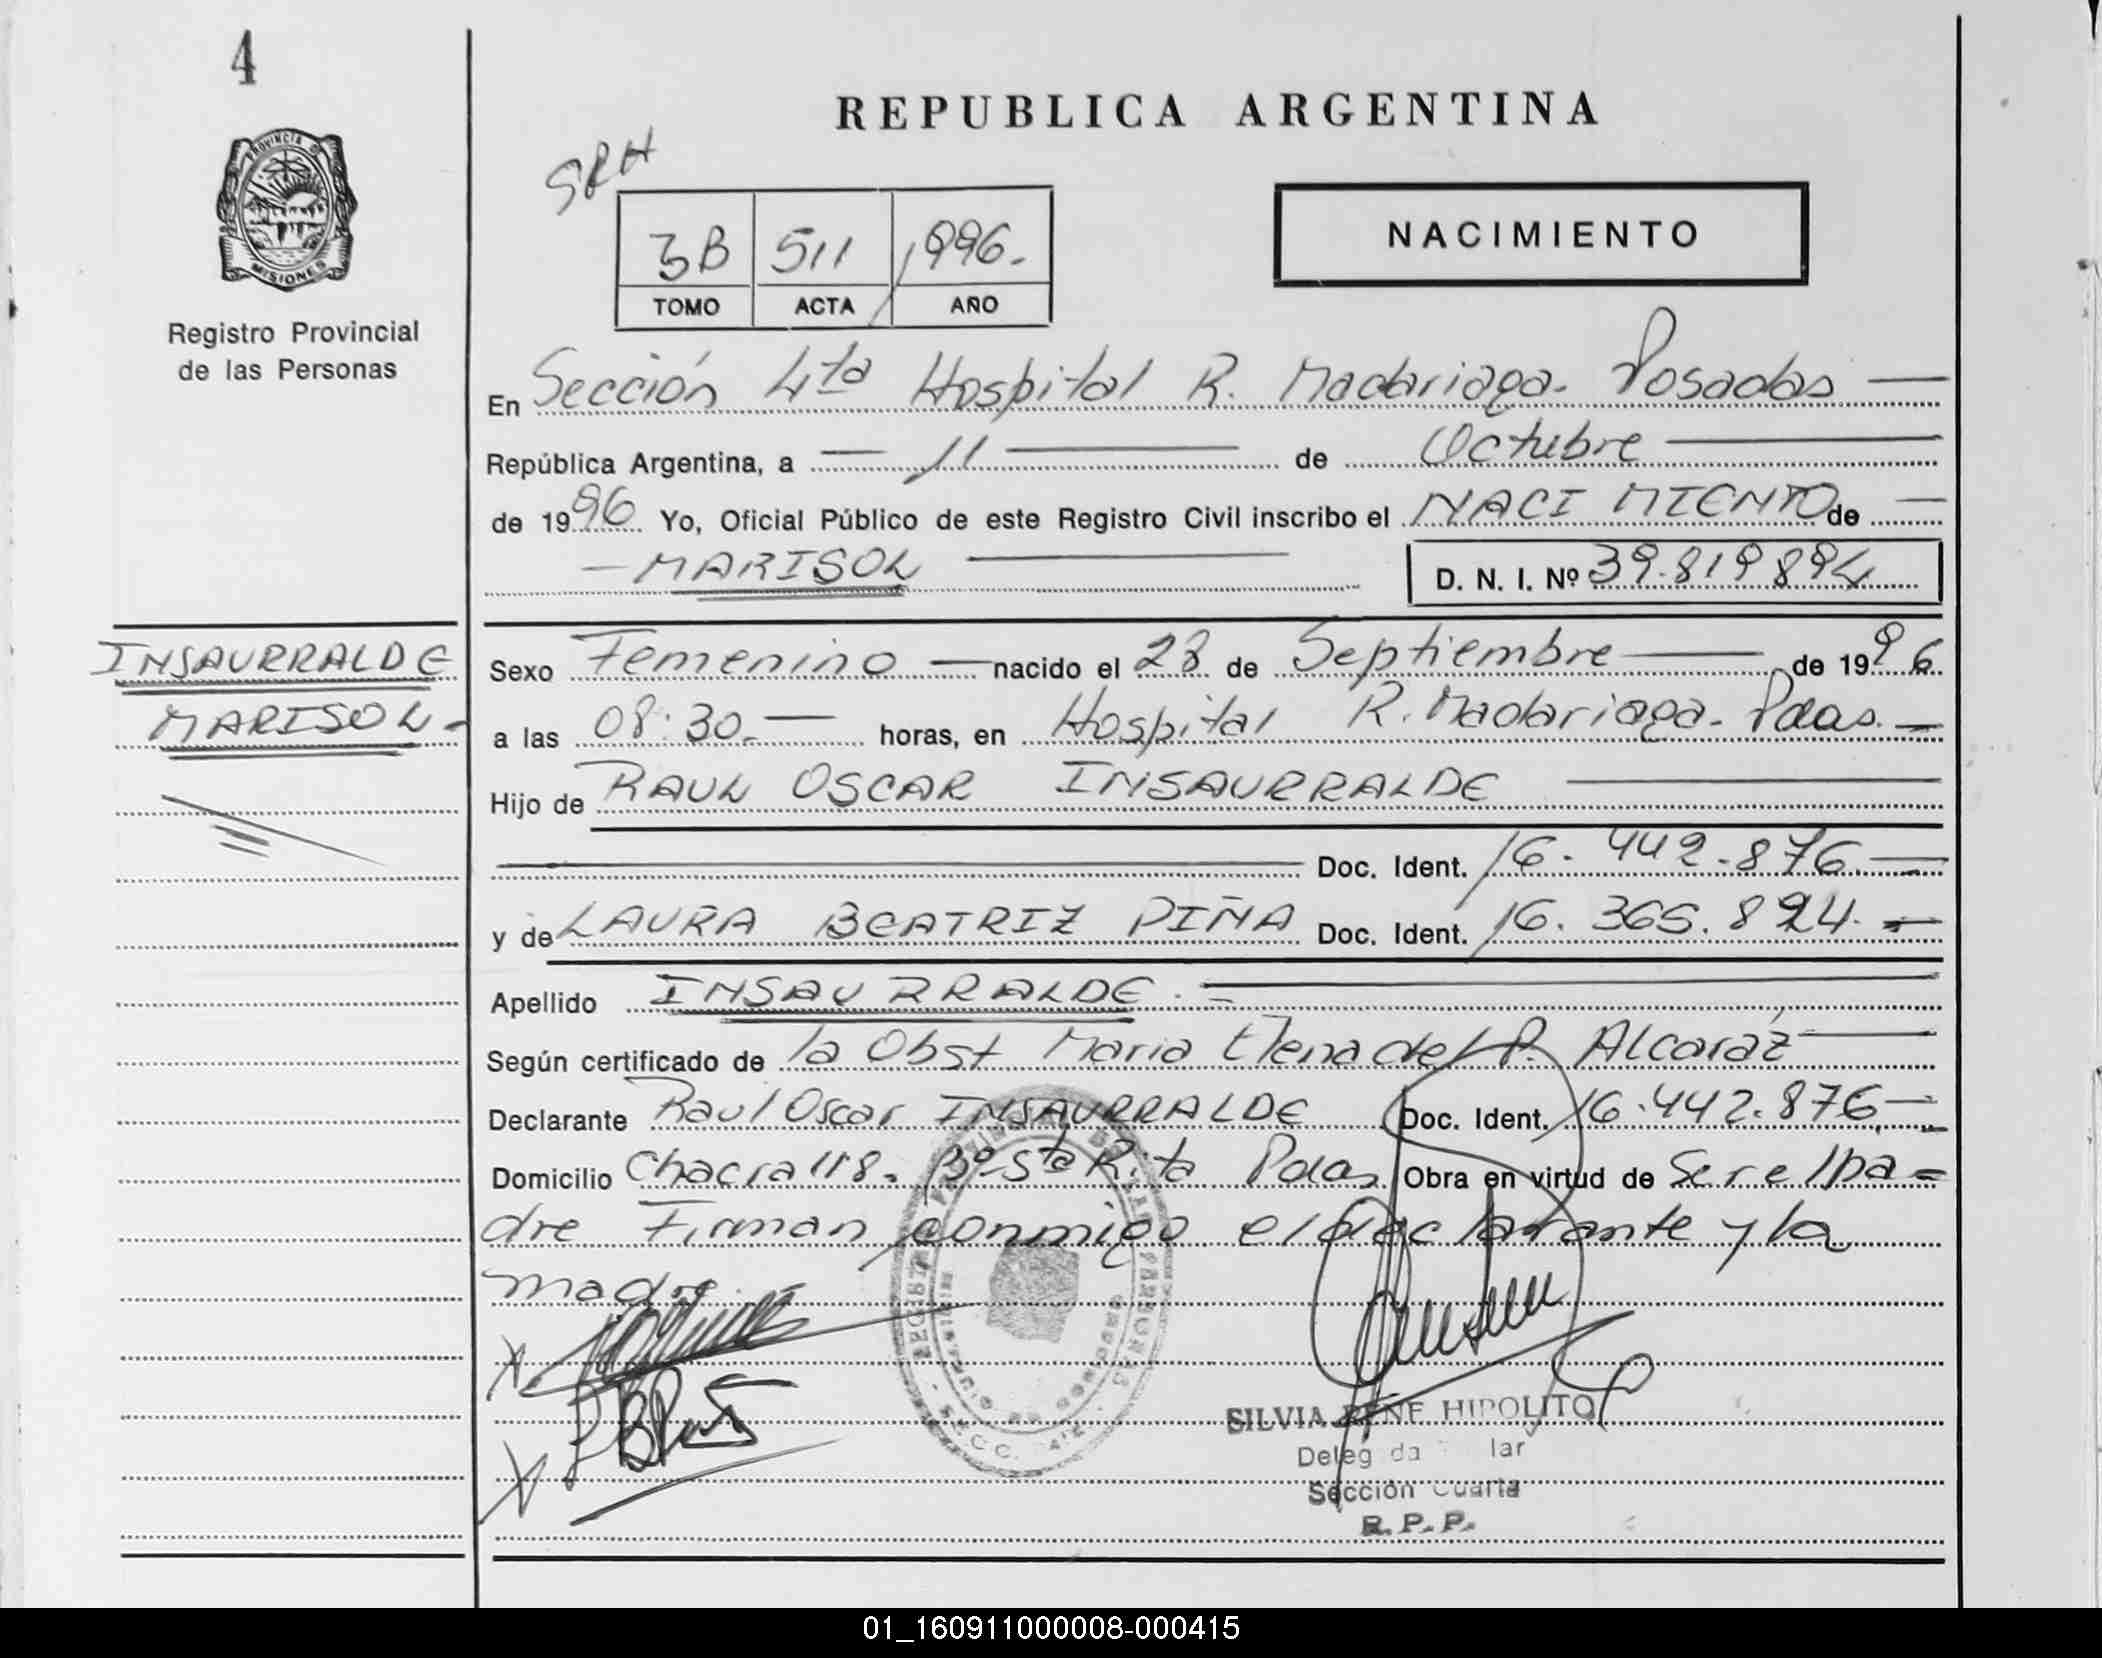 4
REPUBLICA ARGENTINA
SRH
PROVINCIA D
MISIONES
Registro Provincial
de las Personas
3B 511 1996.
TOMO ACTA AÑO
NACIMIENTO
En Sección 4ta Hospital R. Madariaga. Posadas
República Argentina, a 11 de Octubre
de 1996 Yo, Oficial Público de este Registro Civil inscribo el NACIMIENTO de
MARISOL D. N. I. Nº 39.819894
INSAURRALDE
MARISOL
Sexo Femenino nacido el 28 de Septiembre de 1996
a las 08:30. horas, en Hospital R. Madariaga. Pdas.
Hijo de RAUL OSCAR INSAURRALDE
Doc. Ident. 16.442.876.
y de LAURA BEATRIZ PIÑA Doc. Ident. 16.365.894.
Apellido INSAURRALDE.
Según certificado de la Obst Maria Elena del P. Alcaraz
Declarante Raul Oscar INSAURRALDE Doc. Ident. 16.442.876
Domicilio Chacra 118. Bº Sta Rita Pdas Obra en virtud de Ser el pa=
dre Firman conmigo el declarante y la
madre.
SILVIA HIPOLITO
Sección Cuarta
R.P.P.
01_160911000008-000415